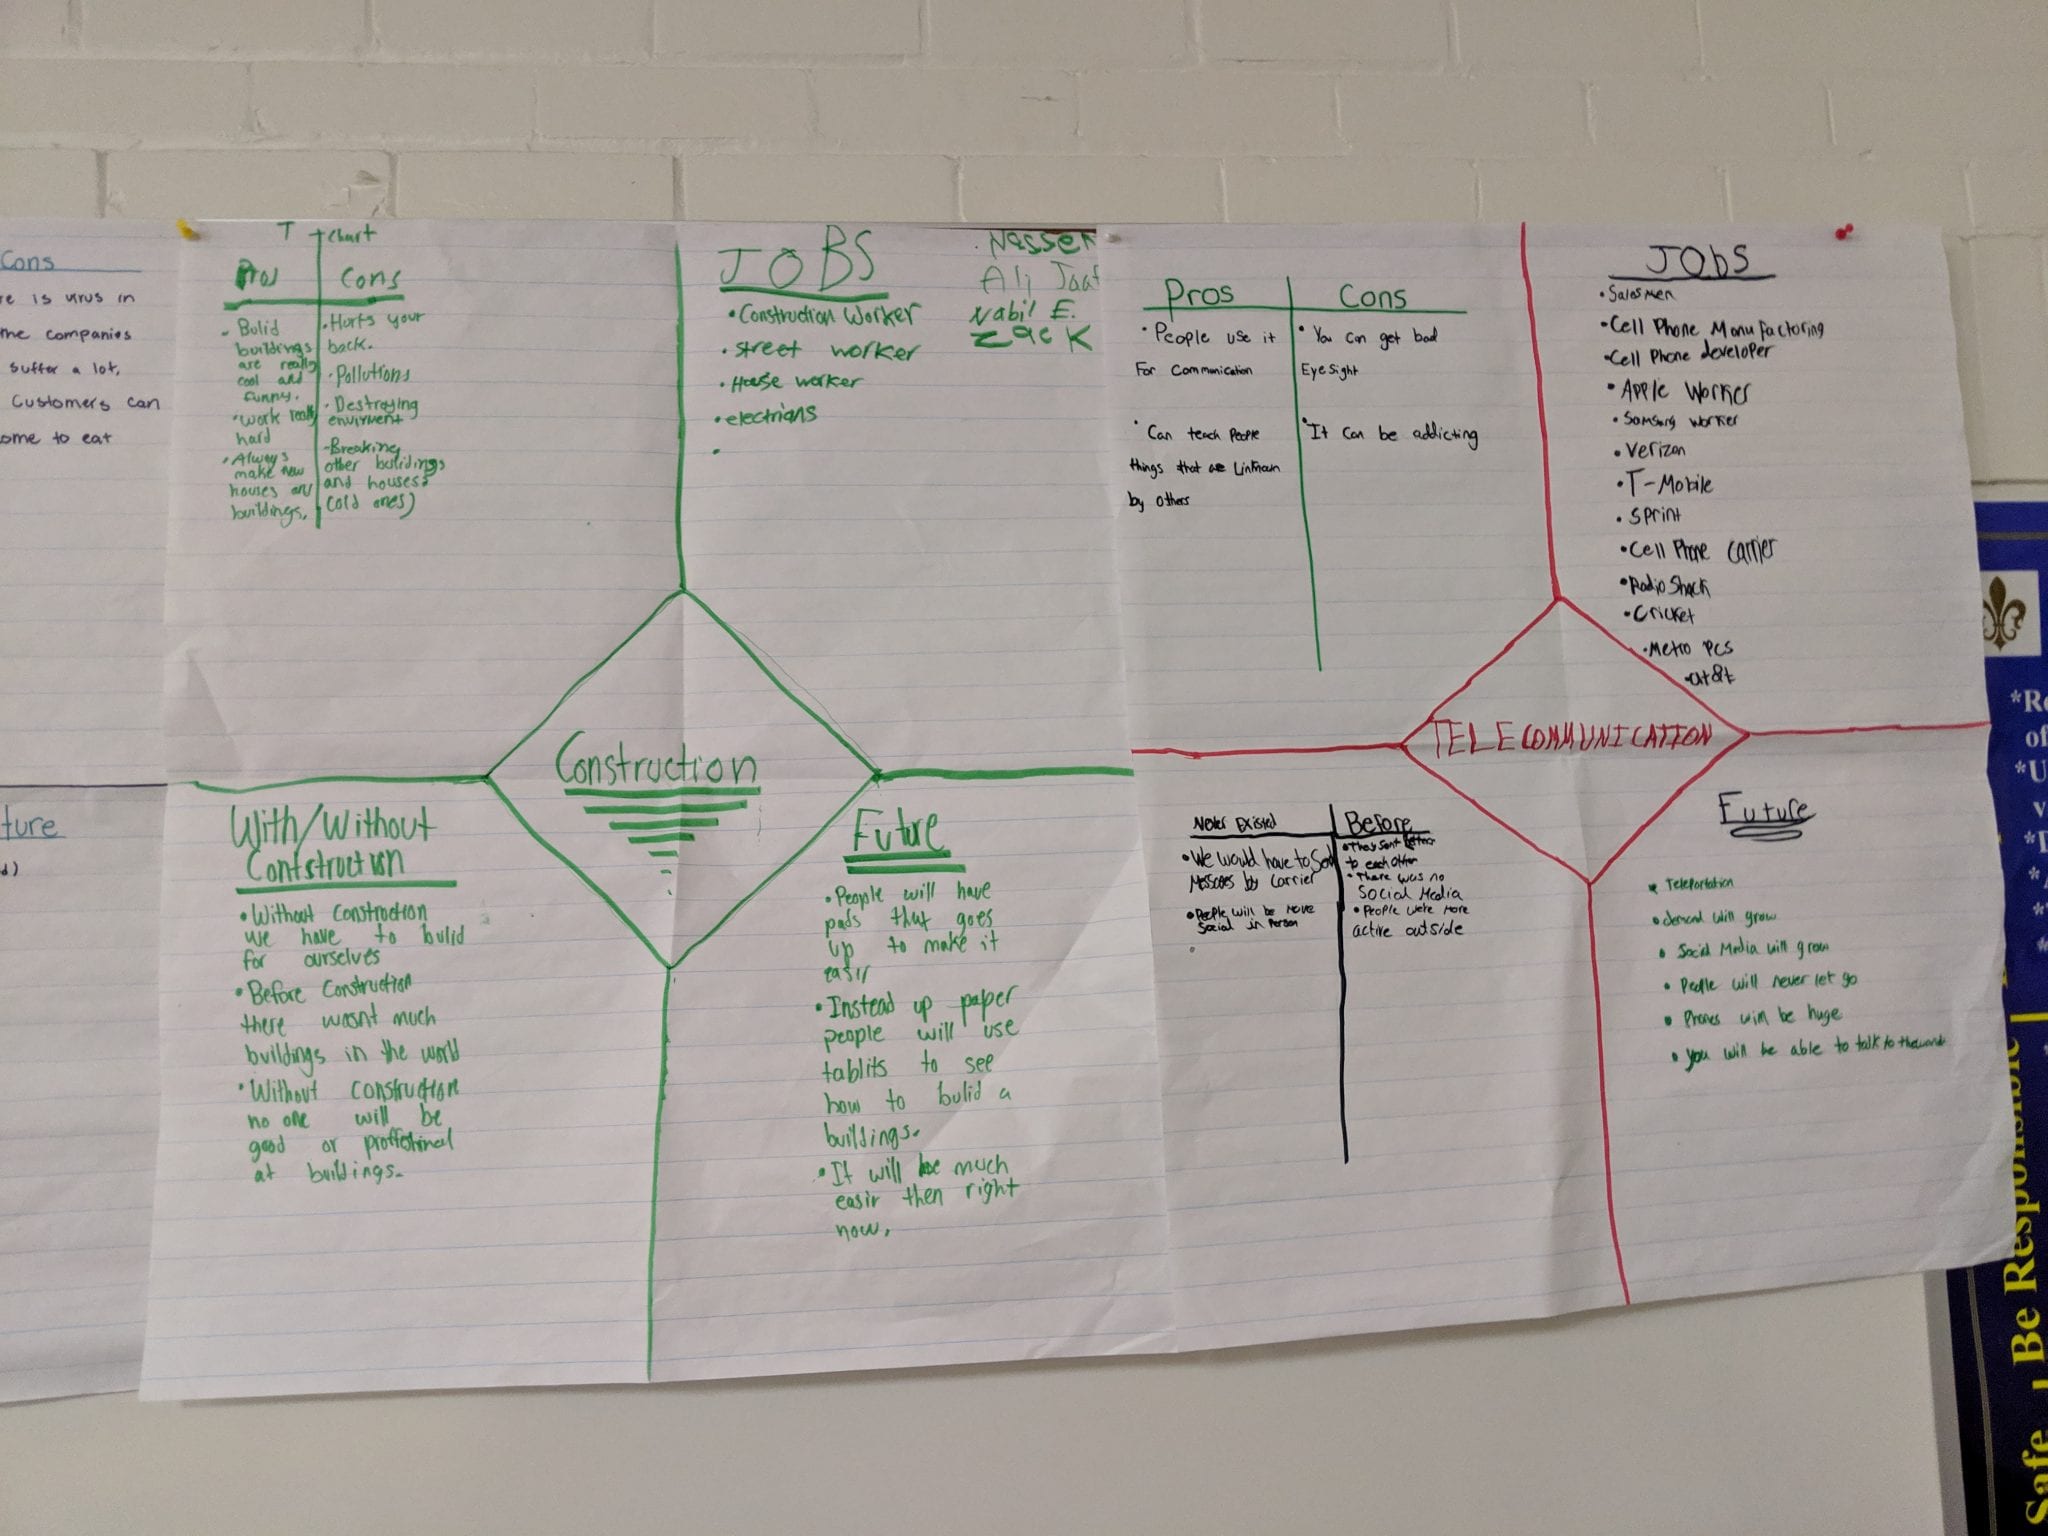 Cons
re is virus in
me companies
suffer a lot,
Customers can
ome to eat
ture
d)
T chart
Pros
Cons
Bulid
buildings
are really
cool and
funny.
work really
hard
Always
make new
houses and
buildings.
Hurts your
back.
Pollutions
Destroying
envirment
Breaking
other buildings
and houses.
(old ones)
JOBS
Construction Worker
street worker
House worker
electrians
Nasser
Ali Jaaf
Nabil E.
Zack
Construction
With/Without
Contstruction
Without construction
we have to bulid
for ourselves
Before construction
there wasnt much
buildings in the world
Without construction
no one will be
good or proffesional
at buildings.
Future
People will have
pads that goes
up to make it
easir
Instead up paper
people will use
tablits to see
how to bulid a
buildings.
It will be much
easir then right
now.
Pros
Cons
People use it
For Communication
Can teach People
things that are Unknown
by others
You can get bad
Eyesight
It can be addicting
JObS
Salesmen
Cell Phone Manufactoring
Cell Phone developer
Apple Worker
Samsung worker
Verizon
T-Mobile
Sprint
Cell Phone Carrier
Radio Shack
Cricket
Metro PCS
at&t
TELECOMMUNICATION
Never Existed
We would have to Send
Messages by Carrier
People will be more
Social in Person
Before
They sent letters
to each other
There was no
Social Media
People were more
active outside
Future
Teleportation
demand will grow
Social Media will grow
People will never let go
Phones will be huge
you will be able to talk to
*Re
of
*U
v
Safe Be Responsible